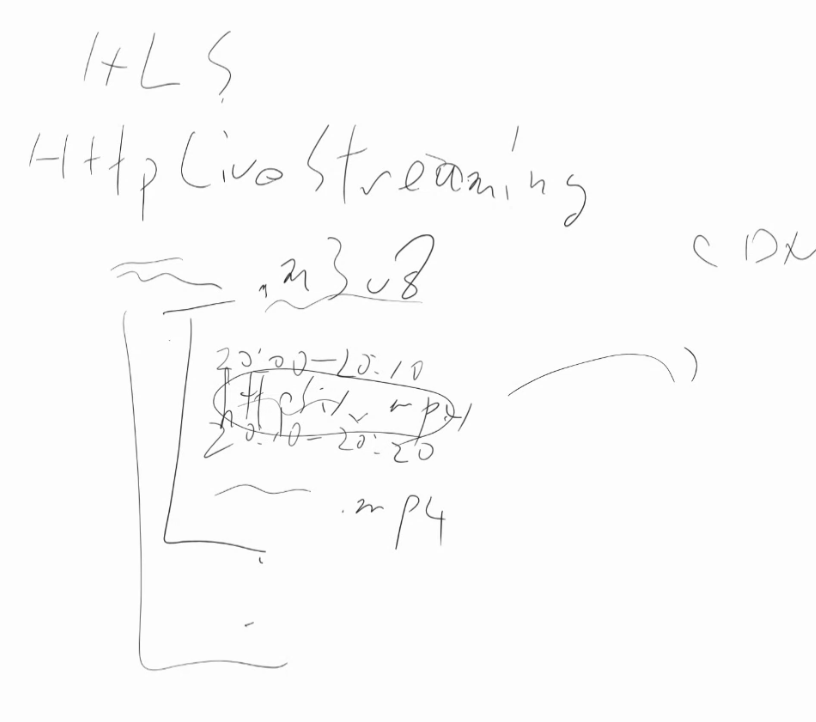 HLS
Http Live Streaming
.m3u8
20:00-20:10
20:10-20:20
.mp4